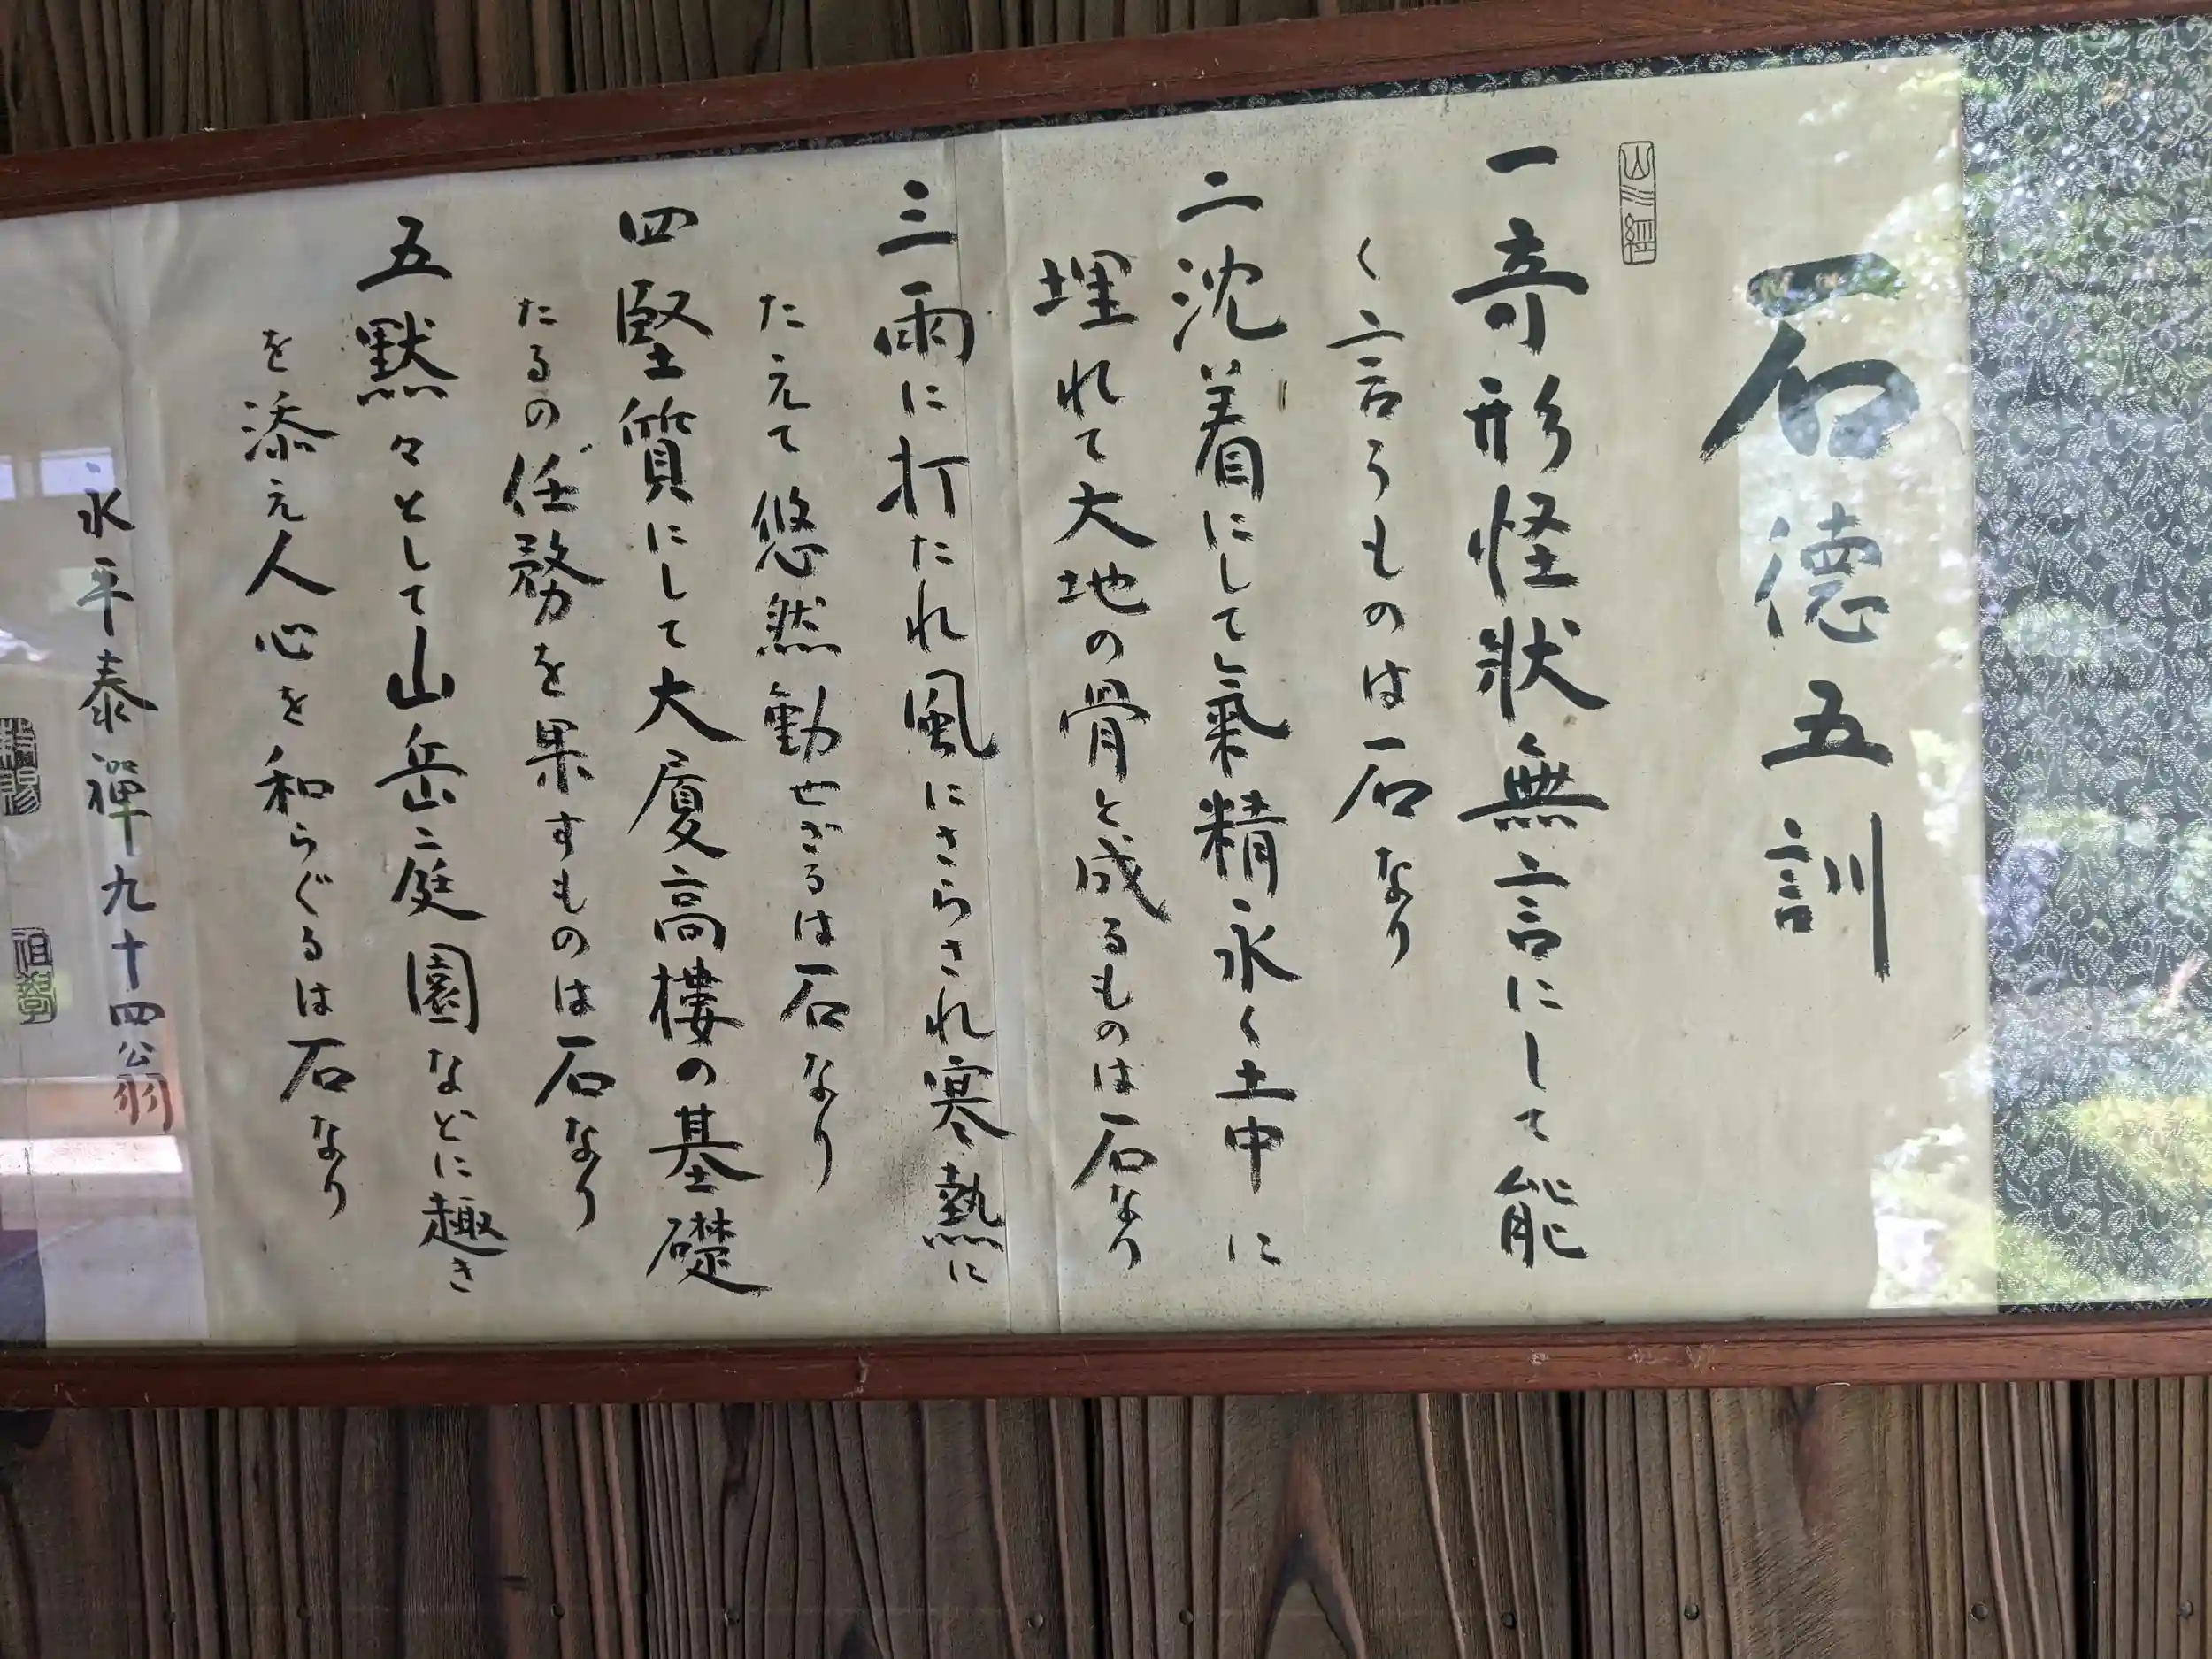 石徳五訓
山水經
一奇形怪狀無言にして能
く言うものは石なり
二沈着にして氣精永く土中に
埋れて大地の骨と成るものは石なり
三雨に打たれ風にさらされ寒熱に
たえて悠然動せざるは石なり
四堅質にして大厦高樓の基礎
たるの任務を果すものは石なり
五黙々として山岳庭園などに趣き
を添え人心を和らぐるは石なり
永平泰禅九十四翁